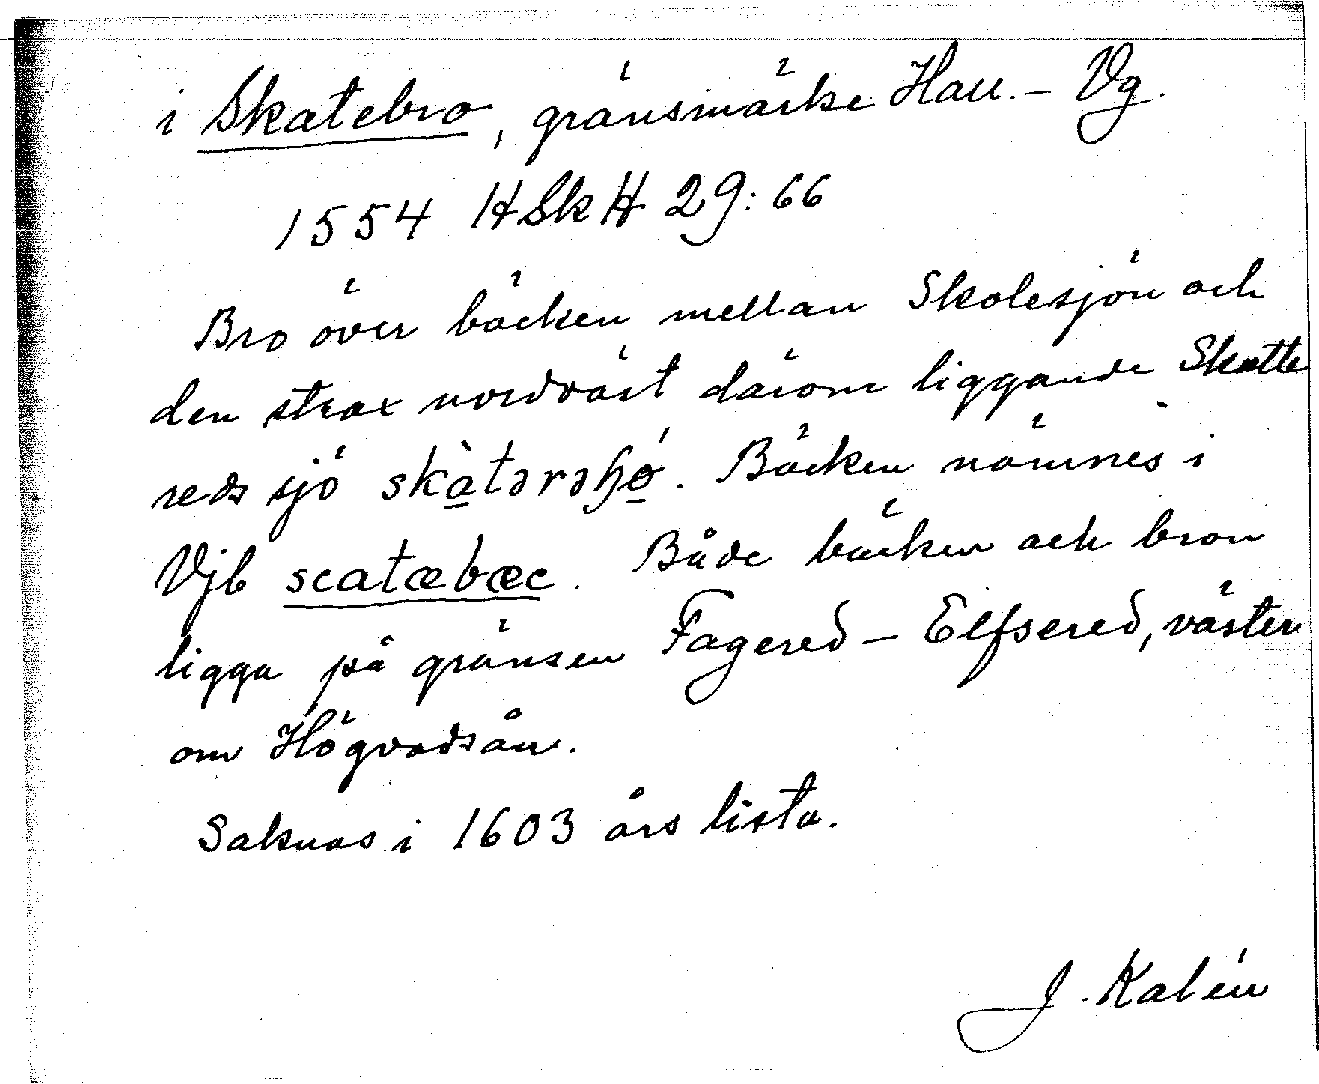 i Skatebro, gränsmärke Hall. – Vg.
1554 HSkH 29:66
Bro över bäcken mellan Skolesjön och
den strax nordväst därom liggande Skatte
reds sjö skàtərəɧø. Bäcken nämnes i
Vjb scatæbæc. Både bäcken och bron
ligga på gränsen Fagered – Elfsered, väster
om Högvadsån.
Saknas i 1603 års lista.
J. Kalén